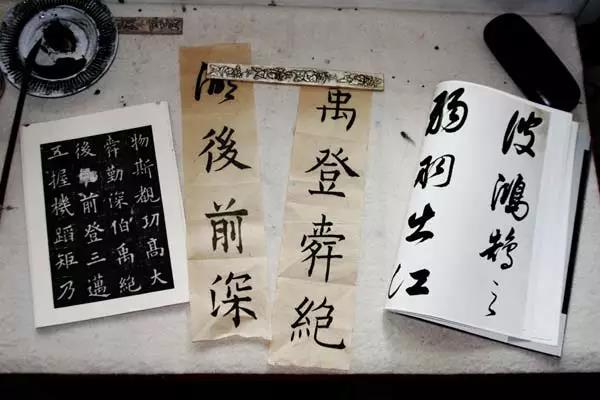 物斯覩功高大
舜勤深伯禹絶
後前登三邁
五握機蹈矩乃
禹登舜絶
後前深
波鴻鵠之
弱羽出江